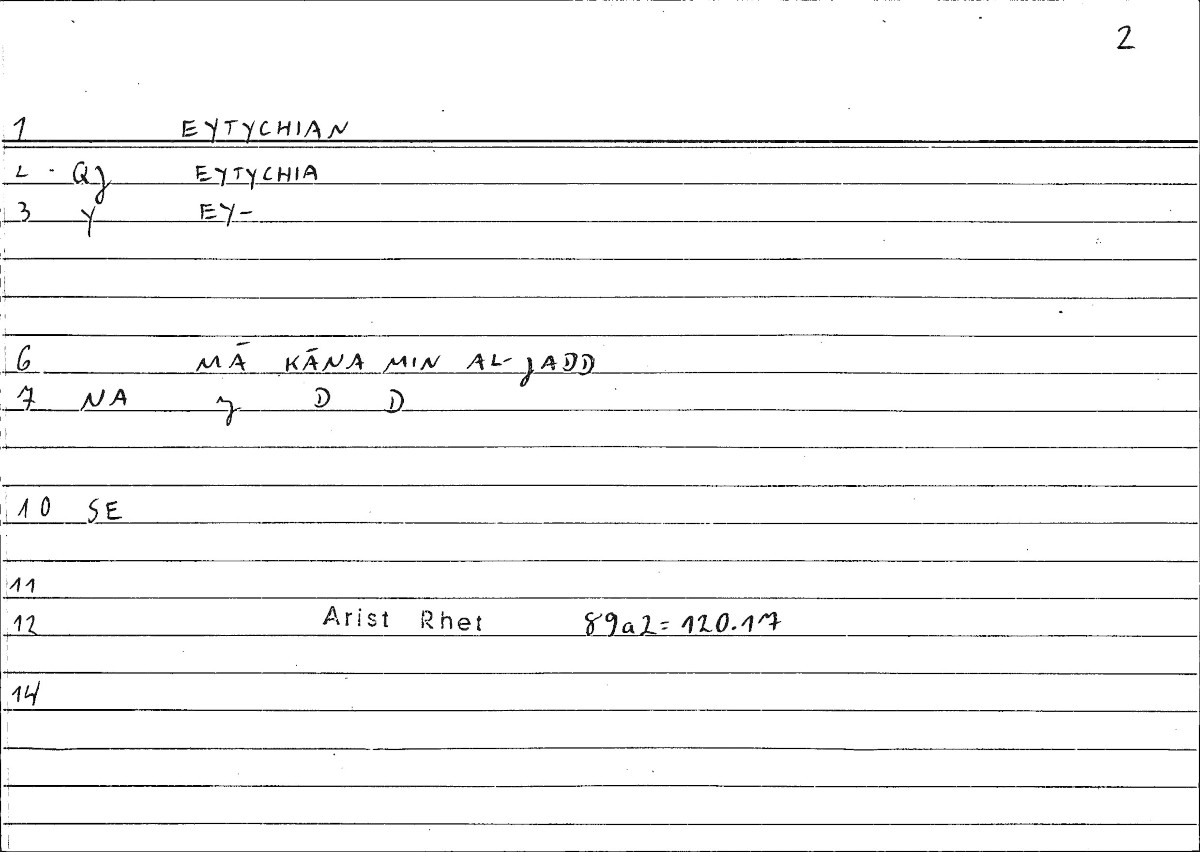 2
1 EYTYCHIAN
2 · Qj EYTYCHIA
3 Y EY-
6 MĀ KĀNA MIN AL-jADD
7 NA j D D
10 SE
11
12 Arist Rhet 89a2=120.17
14